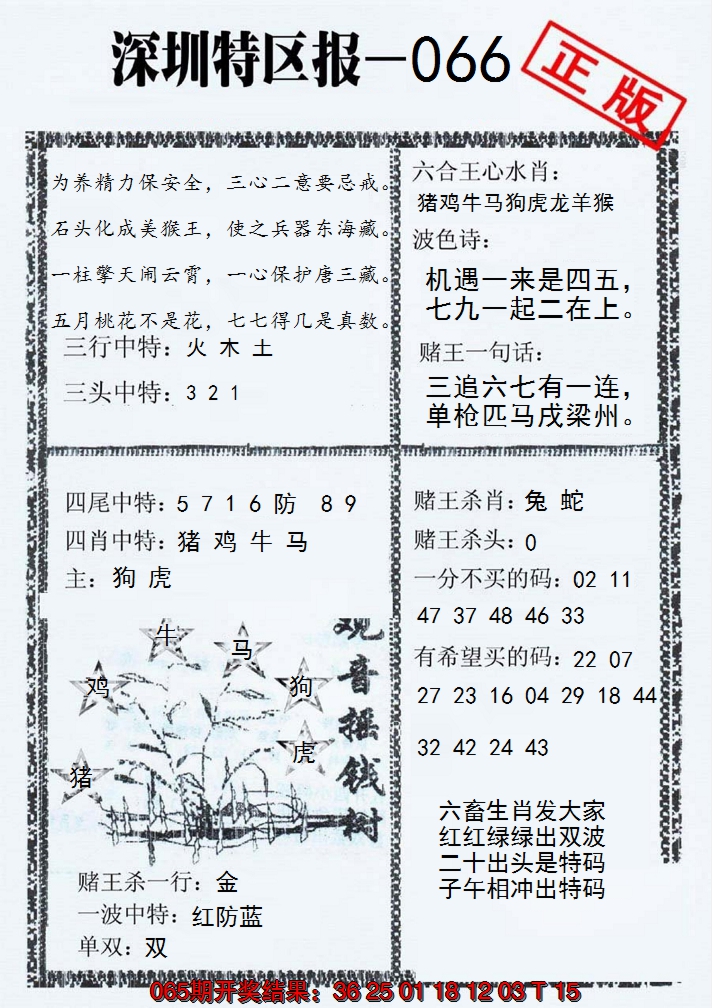 深圳特区报—066
正版
为养精力保安全，三心二意要忌戒。
石头化成美猴王，使之兵器东海藏。
一柱擎天闹云霄，一心保护唐三藏。
五月桃花不是花，七七得几是真数。
三行中特：火 木 土
三头中特：3 2 1
六合王心水肖：
猪鸡牛马狗虎龙羊猴
波色诗：
机遇一来是四五，
七九一起二在上。
赌王一句话：
三追六七有一连，
单枪匹马戌梁州。
四尾中特：5 7 1 6 防 8 9
四肖中特：猪 鸡 牛 马
主：狗 虎
牛
马
鸡
狗
虎
猪
观音摇钱树
赌王杀一行：金
一波中特：红防蓝
单双：双
赌王杀肖：兔 蛇
赌王杀头：0
一分不买的码：02 11
47 37 48 46 33
有希望买的码：22 07
27 23 16 04 29 18 44
32 42 24 43
六畜生肖发大家
红红绿绿出双波
二十出头是特码
子午相冲出特码
065期开奖结果：36 25 01 18 12 03 T 15